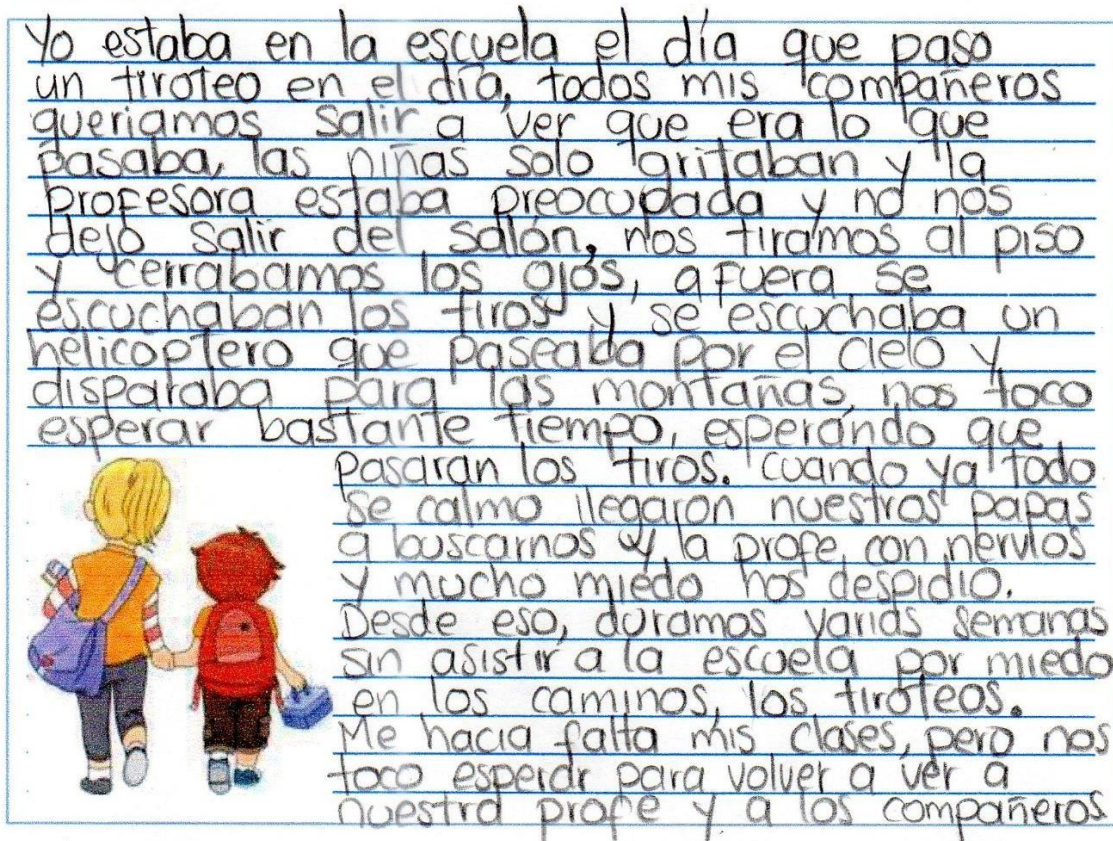 Yo estaba en la escuela el día que paso
un tiroteo en el día, todos mis compañeros
queriamos salir a ver que era lo que
pasaba, las niñas solo gritaban y la
profesora estaba preocupada y no nos
dejo salir del salón, nos tiramos al piso
y cerrabamos los ojos, afuera se
escuchaban los tiros y se escuchaba un
helicoptero que paseaba por el cielo y
disparaba para las montañas, nos toco
esperar bastante tiempo, esperando que
pasaran los tiros. cuando ya todo
se calmo llegaron nuestros papas
a buscarnos y la profe, con nervios
y mucho miedo nos despidio.
Desde eso, duramos varias semanas
sin asistir a la escuela por miedo
en los caminos, los tiroteos.
Me hacia falta mis clases, pero nos
toco esperar para volver a ver a
nuestra profe y a los compañeros